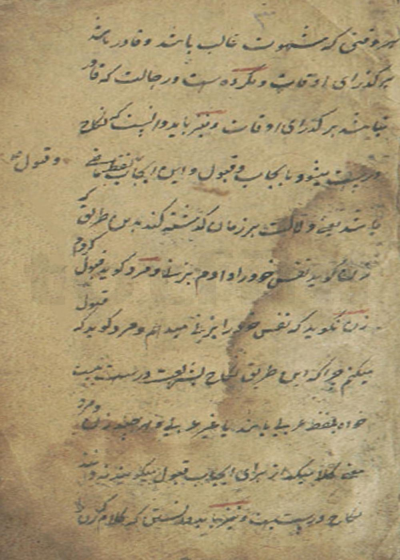 هر وقتی که شهوت غالب باشد و قادر باشد
بر گذرای اوقات و مکروه ست در حالت که قادر
نباشد بر گذرای اوقات و نیز باید دانست که نکاح
درست میشود بایجاب و قبول و این ایجاب بلفظ ماضی
و قبول
باشد یعنی دلالت بر زمان گذشته کند بدین طریق که
زن گوید نفس خود را دادم بزنی و مرد گوید قبول کردم
زن گوید که نفس خود را بزنی میدهم و مرد گوید که قبول
میکنم چرا که این طریق نکاح درست نیست
خواه بلفظ عربی باشد یا غیر عربی و هر چند زن و مرد
معنی کلامیکه از برای ایجاب قبول میگویند ندانند
نکاح درست و نیز باید دانستن که کلام کردن